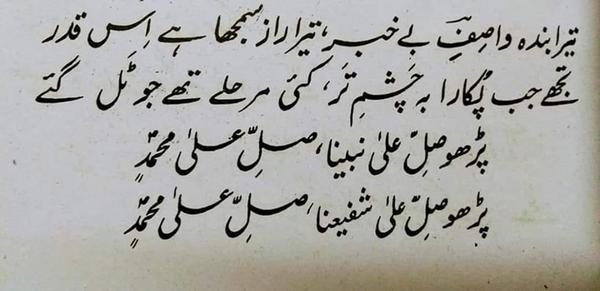 تیرا بندہ واصفِؔ بے خبر، تیرا راز سمجھا ہے اِس قدر
تجھے جب پُکارا بہ چَشمِ تَر، کئی مرحلے تھے جو ٹَل گئے
پڑھو صلِّ علیٰ نبینا، صلِّ علیٰ محمدٍؐ
پڑھو صلِّ علیٰ شفیعنا، صلِّ علیٰ محمدٍؐ